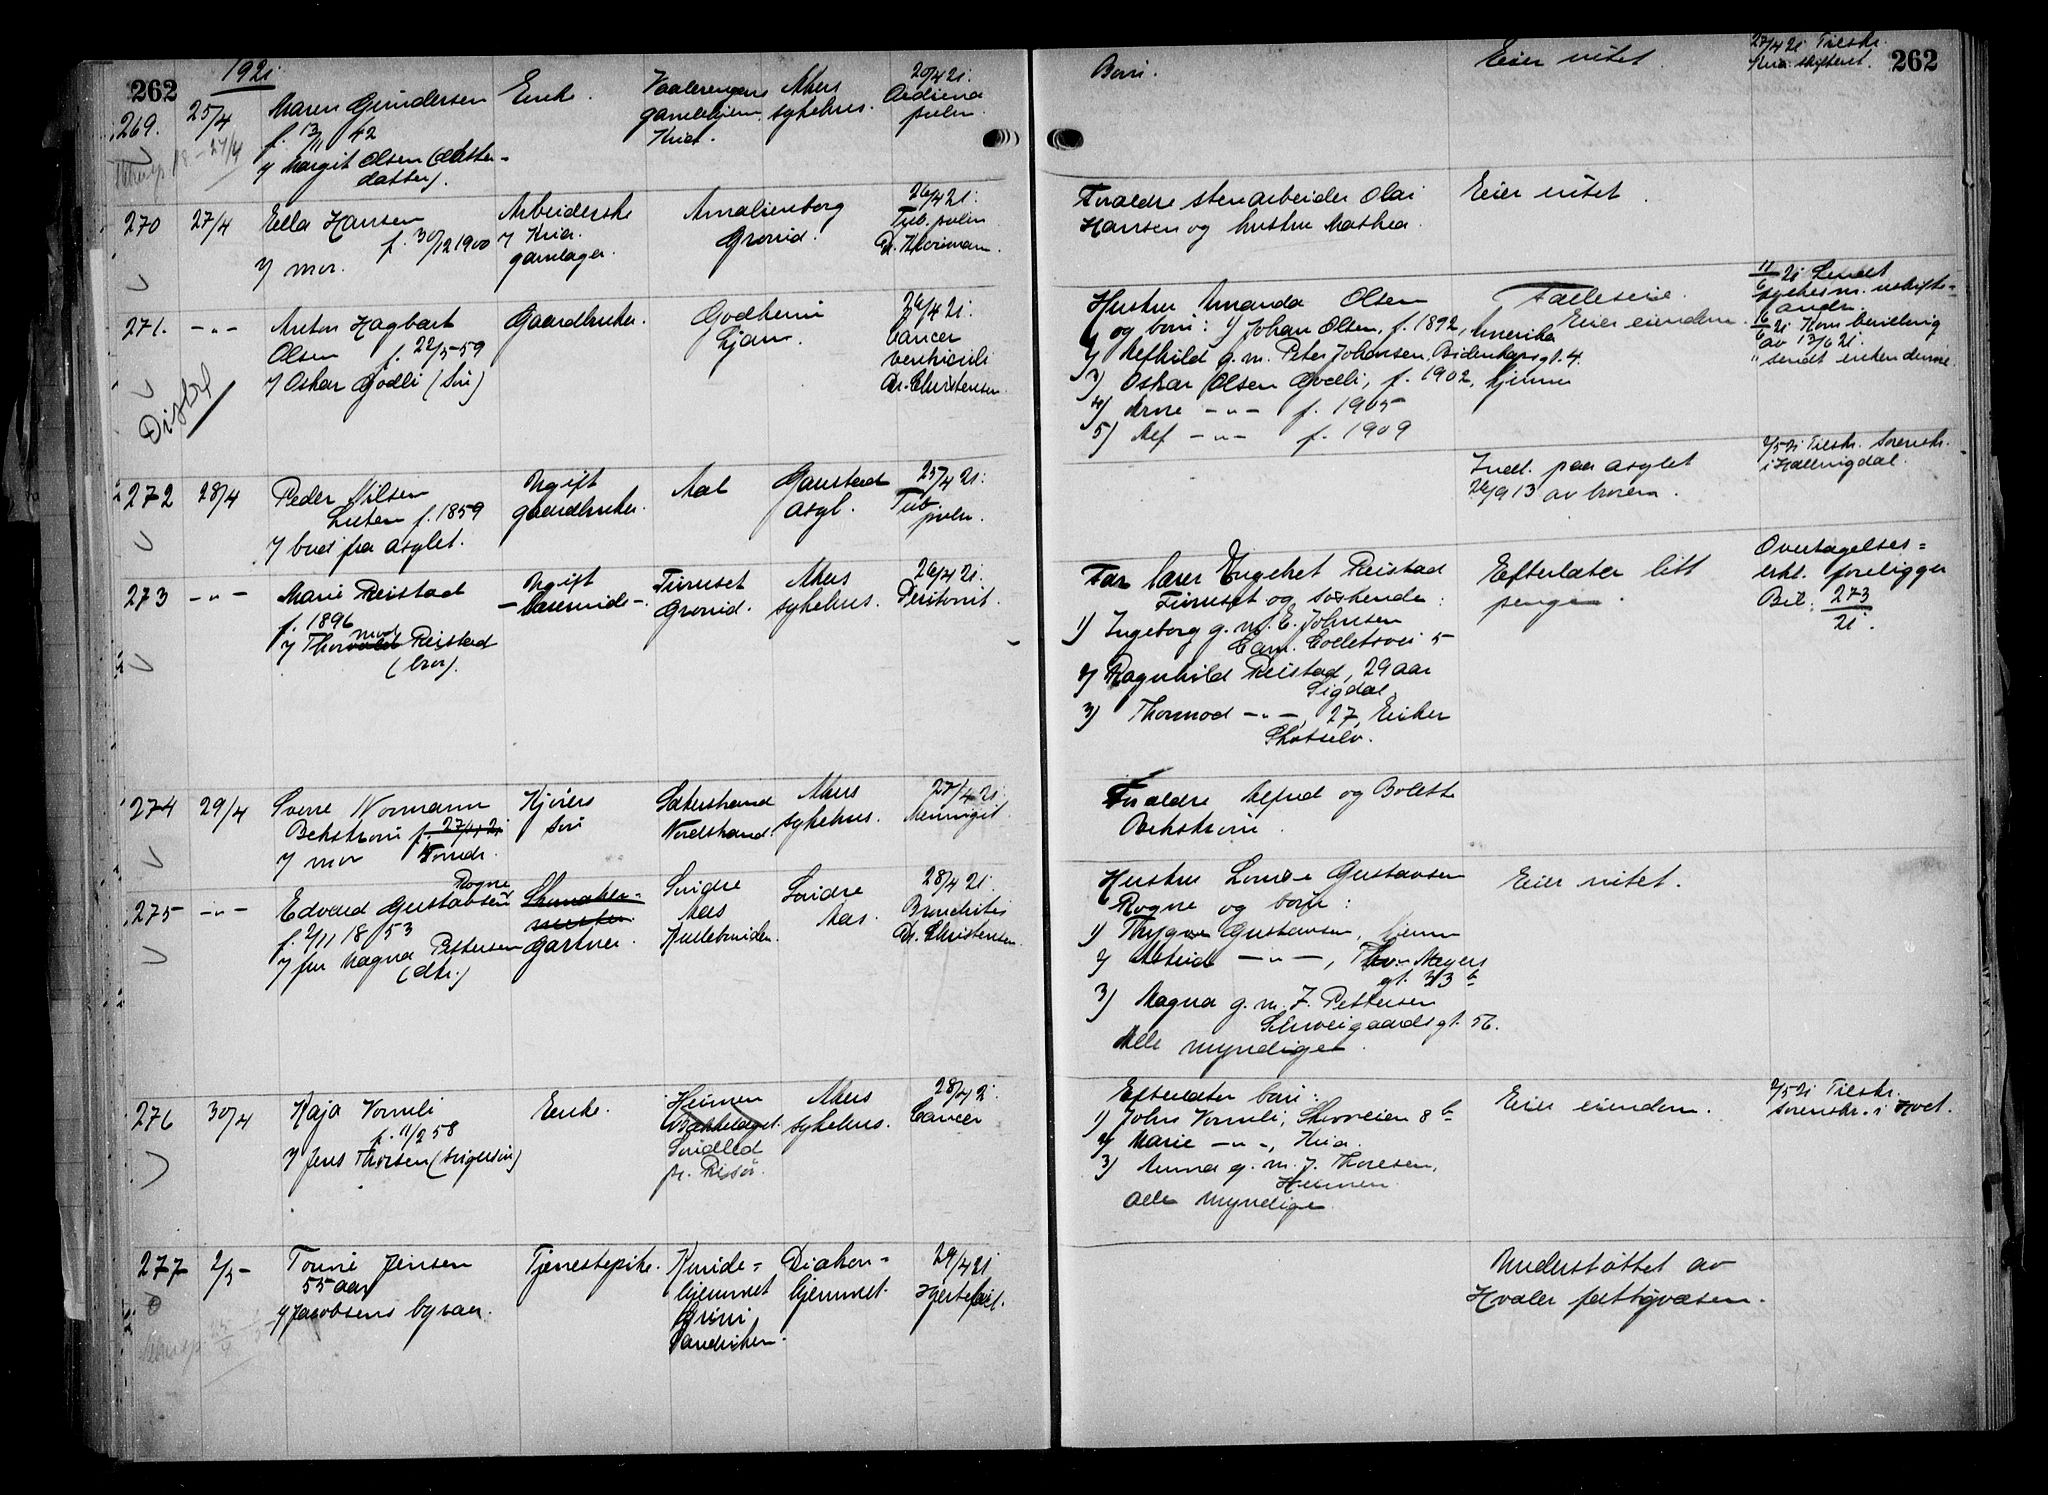 262
1921
269.
25/4
Maren Gundersen
f. 13/11 42
v/ Margit Olsen (datter-
datter).
Enke.
Vaalerengens
gamlehjem
Kria.
Akers
sykehus.
20/4 21.
Børn.
Eier intet.
27/4 21 Tilskr.
Kria skifteret.
262
270
27/4
Ella Hansen
f. 30/12 1900
v/ mor.
Arbeiderske
v/ Kria.
garnlager
Amalienborg
Grorud.
26/4 21.
Tub. pulm
Foræld­re stenarbeider Olai
Hansen og hustru Mathea.
Eier intet.
271.
-"-
Anton Hagbart
Olsen f. 22/5-59
v/ Oskar Godli (søn)
Disbl
Gaardbruker.
Godheim
Ljan.
26/4 21.
Cancer
ventriculi
Dr. Christensen.
Hustru Amanda Olsen
og børn: 1) Johan Olsen, f. 1892, Amerika
2) Alfhild g. m. Peter Johansen, Bidenkapsgt. 4.
3) Oskar Olsen Godli, f. 1902, hjemme
4) Arne -"- f. 1905
5) Alf -"- f. 1909
Fælleseie.
Eier eiendom.
11/6 21 Sendt
16/6 21 Kom bevilling
av 13/6 21.
" sendt enken denne
272
28/4
Peder Nilsen
f. 1859
v/ bud fra asylet.
Ugift
gaardbruker.
Aal
Gaustad
asyl.
25/4 21.
Tub.
pulm.
Indl. paa asylet
26/9 13 av broren.
2/5 21 Tilskr. Sorenskr.
i Hallingdal.
273
-"-
Marie Reistad
f. 1896
v/ Thormod Reistad
(bror).
Ugift
- lærerinde -
Furuset
Grorud.
Akers
sykehus.
26/4 21.
Peritonit.
Far lærer Engebret Reistad
Furuset og søskende:
1) Ingeborg g. m. E. Johnsen
Cam. Colletsvei 5
2) Ragnhild Reistad, 29 aar
Sigdal
3) Thormod -"-, 27, Eiker
Skotselv.
Efterlater litt
penger.
Overtagelses=
erkl. foreligger
Bil: 273/21.
274
29/4
Sverre Normann
Bekstrøm f. 27/4 21
v/ mor
Kjørers
søn
Sæterstrand
Nordstrand.
Akers
sykehus.
27/4 21.
Meningit.
Forældre Alfred og Bolette
Bekstrøm.
275
-"-
Rogne
Edvard Gustavsen
f. 2/11 1853
v/ fru Magna Pettersen
(dtr.)
Skomaker-
mester.
Gartner.
Søndre
Aas
Kullebunden.
Søndre
Aas.
28/4 21.
Bronchitis
Dr. Christensen.
Hustru Gustavsen
Rogne og børn:
1) Trygve Gustavsen, hjemme
2) Astrid -"-, Thv. Meyers
gt. 33 b
3) Magna g. m. F. Pettersen
Schweigaardsgt. 56.
Alle myndige.
Eier intet.
276
30/4
Kaja Vormli
f. 11/2 58
v/ Jens Thoresen (svigersøn)
Enke.
Heimen
Søndeled
pr. Risør.
Akers
sykehus.
28/4 21.
Cancer
Efterlater børn:
1) John Vormli, Skovveien 8 b
2) Marie -"-, Kria.
3) Anna g. m. J. Thoresen,
Heimen.
Alle myndige.
Eier eiendom.
2/5 21 Tilskr.
sorenskr. i Holt.
277
2/5-
Tomine Jensen
55 aar
v/ Jacobsens byraa.
Tjenestepike.
Kvinde=
hjemmet
Grini
Sandviken.
Diakon=
hjemmet.
29/4 21
Hjertefeil.
Understøttet av
Hvaler fattigvæsen.